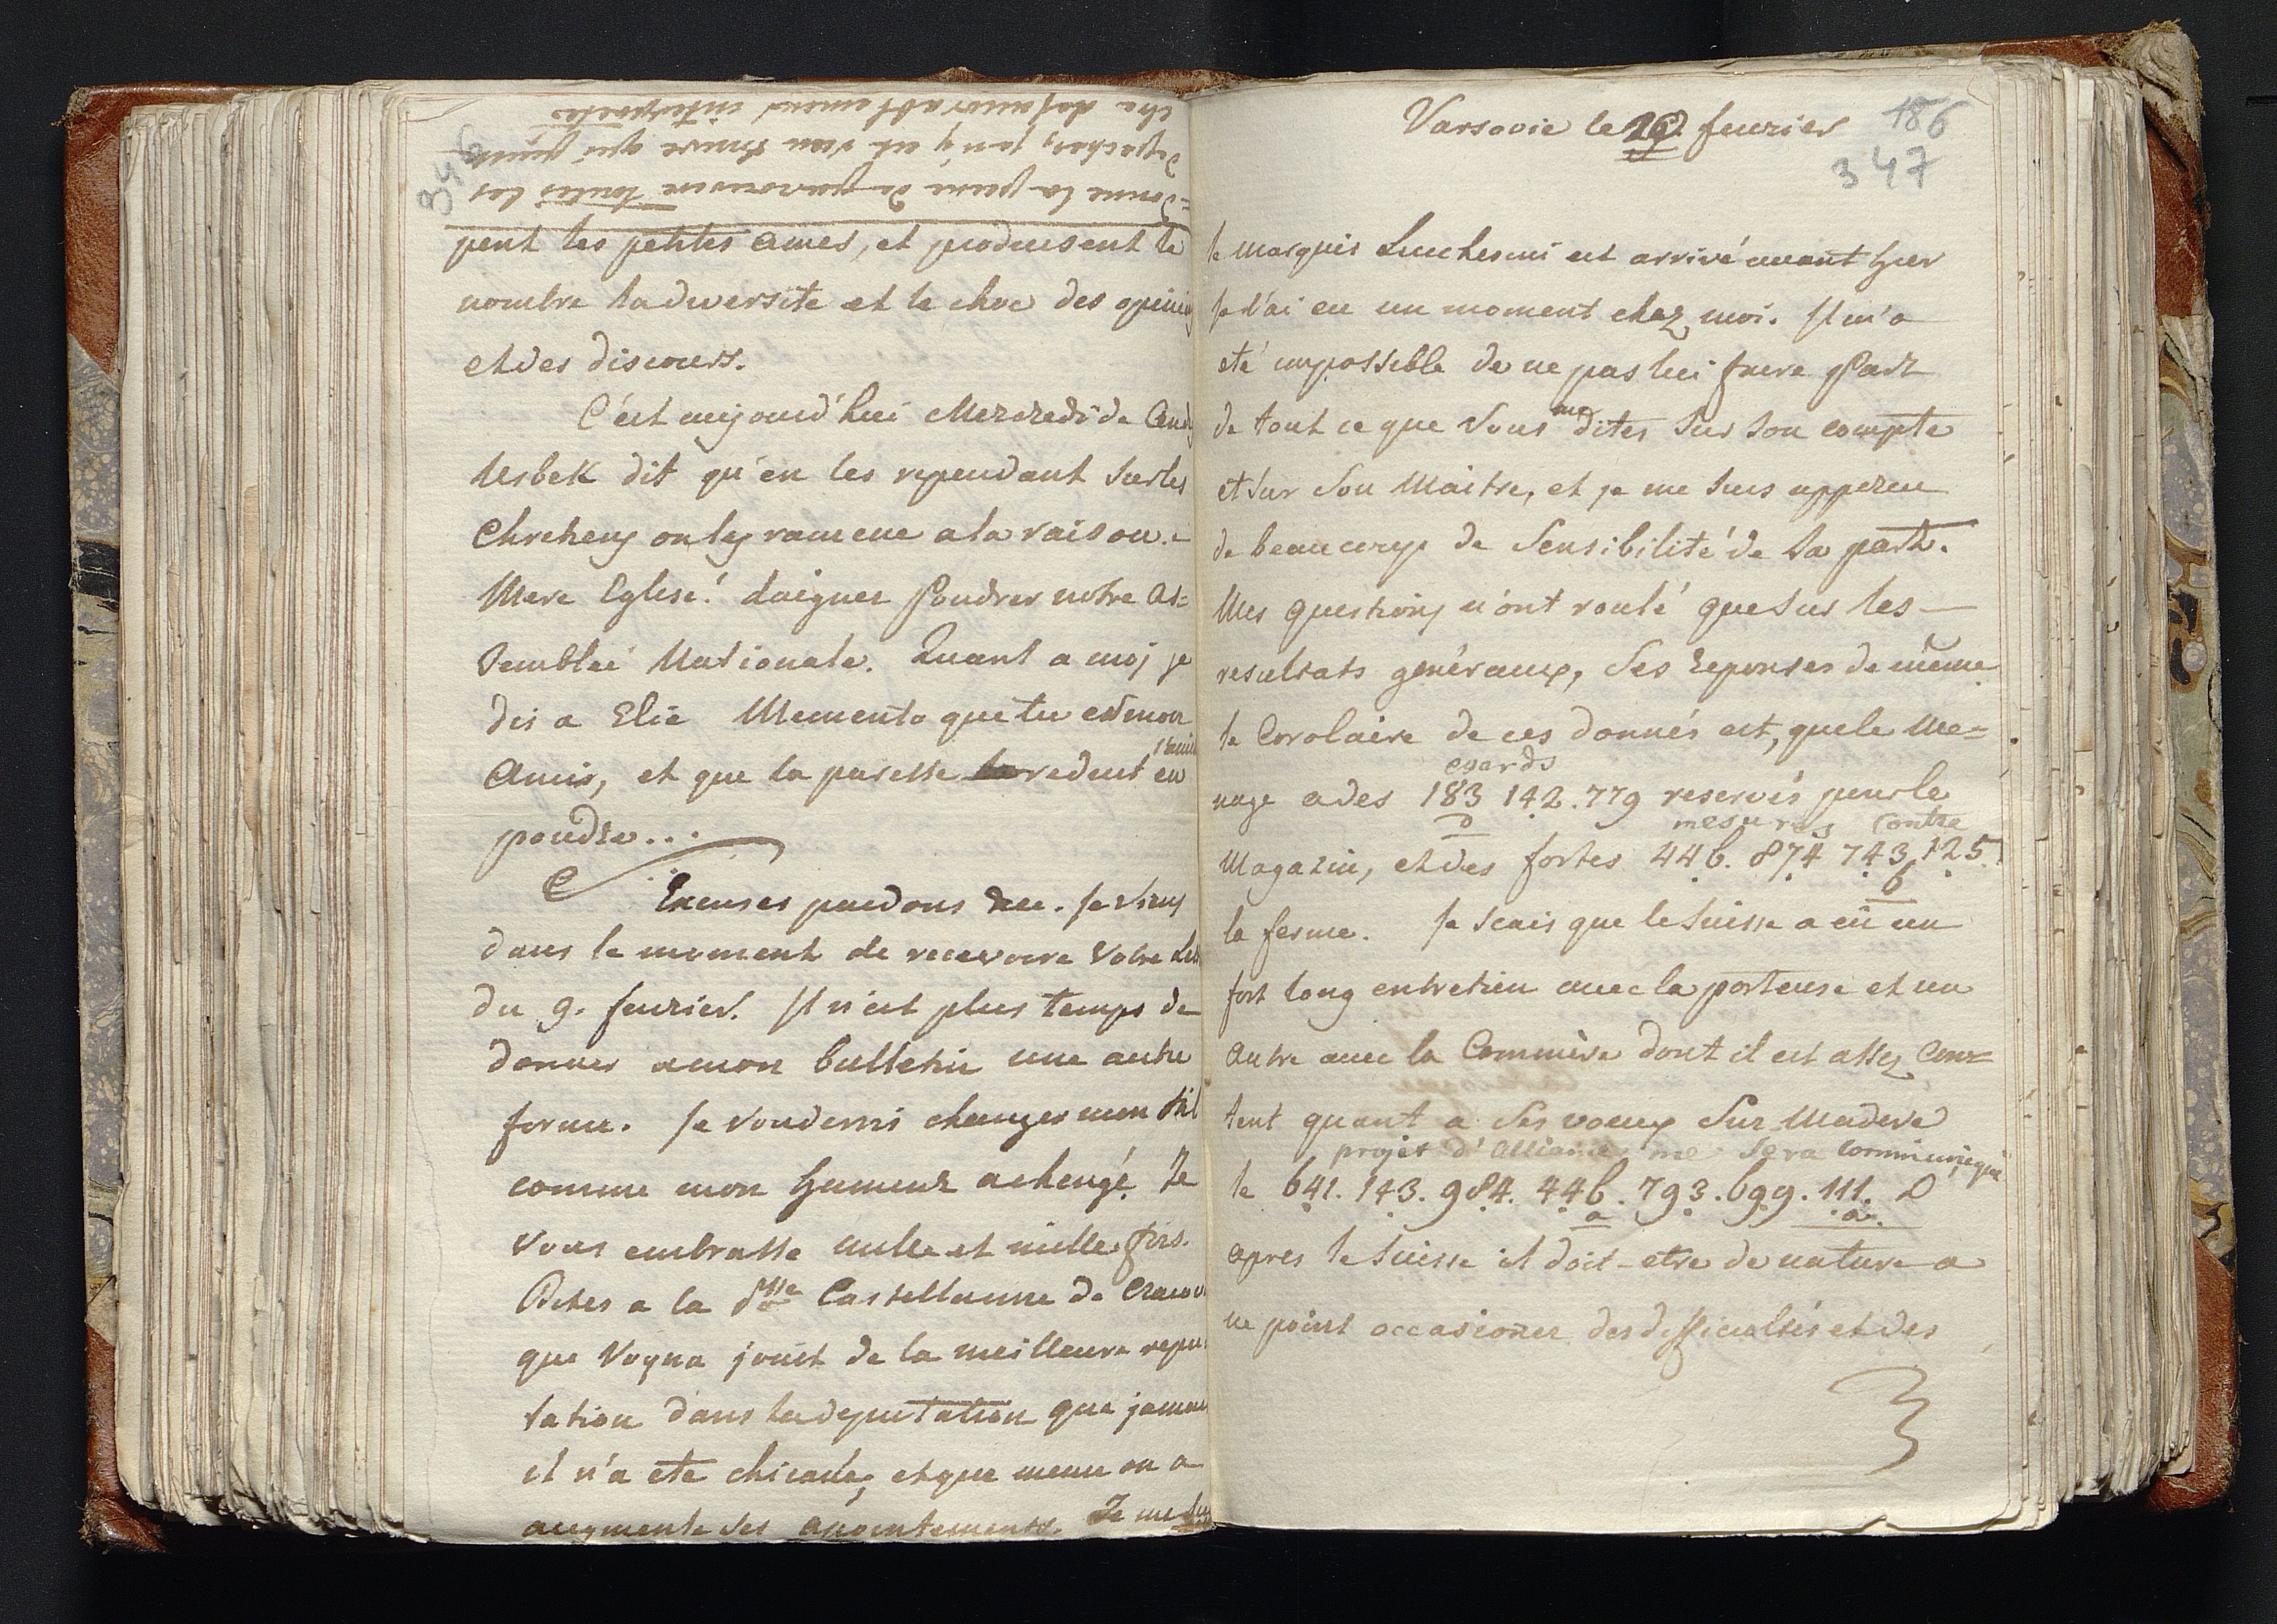 346
pent les petites ames, et produisent le
nombre la diversite et le choc des opinio
et des discours.
C'est aujourd'hui Mercredi de Cend
Usbek dit qu'en les rependant sur les
Chretiens on les ramene a la raison.
Mere Eglise! daignez Poudrer notre As=
semblée Nationale. Quant a moi je
dis a Elie Memento que tu es mon
Amis, et que la paresse reduit en
poudre...
Excuses pardons. Je viens
dans le moment de recevoire votre Let
du 9. fevrier. Il n'est plus temps de
donner a mon bulletin une autre
forme. Je voudrais changer mon stil
comme mon humeur a changé. Je
vous embrasse mille et mille fois.
Dites a la Castellanne de Cracov
que Voyna jouit de la meilleure repu
tation dans la deputation que jamais
il n'a ete chicané, et que meme on a
augmente ses apointements. Je me suis
=donne la peine de parcourire toutes les
depaches, ja n'y ut rien trouve qui puisse
etre defavorablement interprete
Varsovie le fevrier 186
347
le marquis Lucchesini est arrivé avant hier
je l'ai eu un moment chez moi. Il m'a
eté impossible de ne pas lui faire Part
de tout ce que Vous me dites sur son compte
et sur son Maitre, et je me suis apperçu
de beaucoup de sensibilité de sa part.
Mes questions n'ont roulé que sur les
resultats généraux, ses reponses de même
le Corolaire de ces donnés est, que le Me=
egards
nage a des 183 142.779 reservés pour le
D mesures contre
Magazin, et des fortes 446. 874 743 125
6
la ferme. Je scais que le suisse a eü un
fort long entretien avec la porteuse et un
autre avec la Commère dont il est assez Con=
tent quant a ses voeux sur Madere
projet d'alliance me sera communiqué
le 641. 143. 984. 446. 793. 699. 111. D'
a a
apres le suisse il doit-etre de nature a
ne point occasioner des difficultés et des